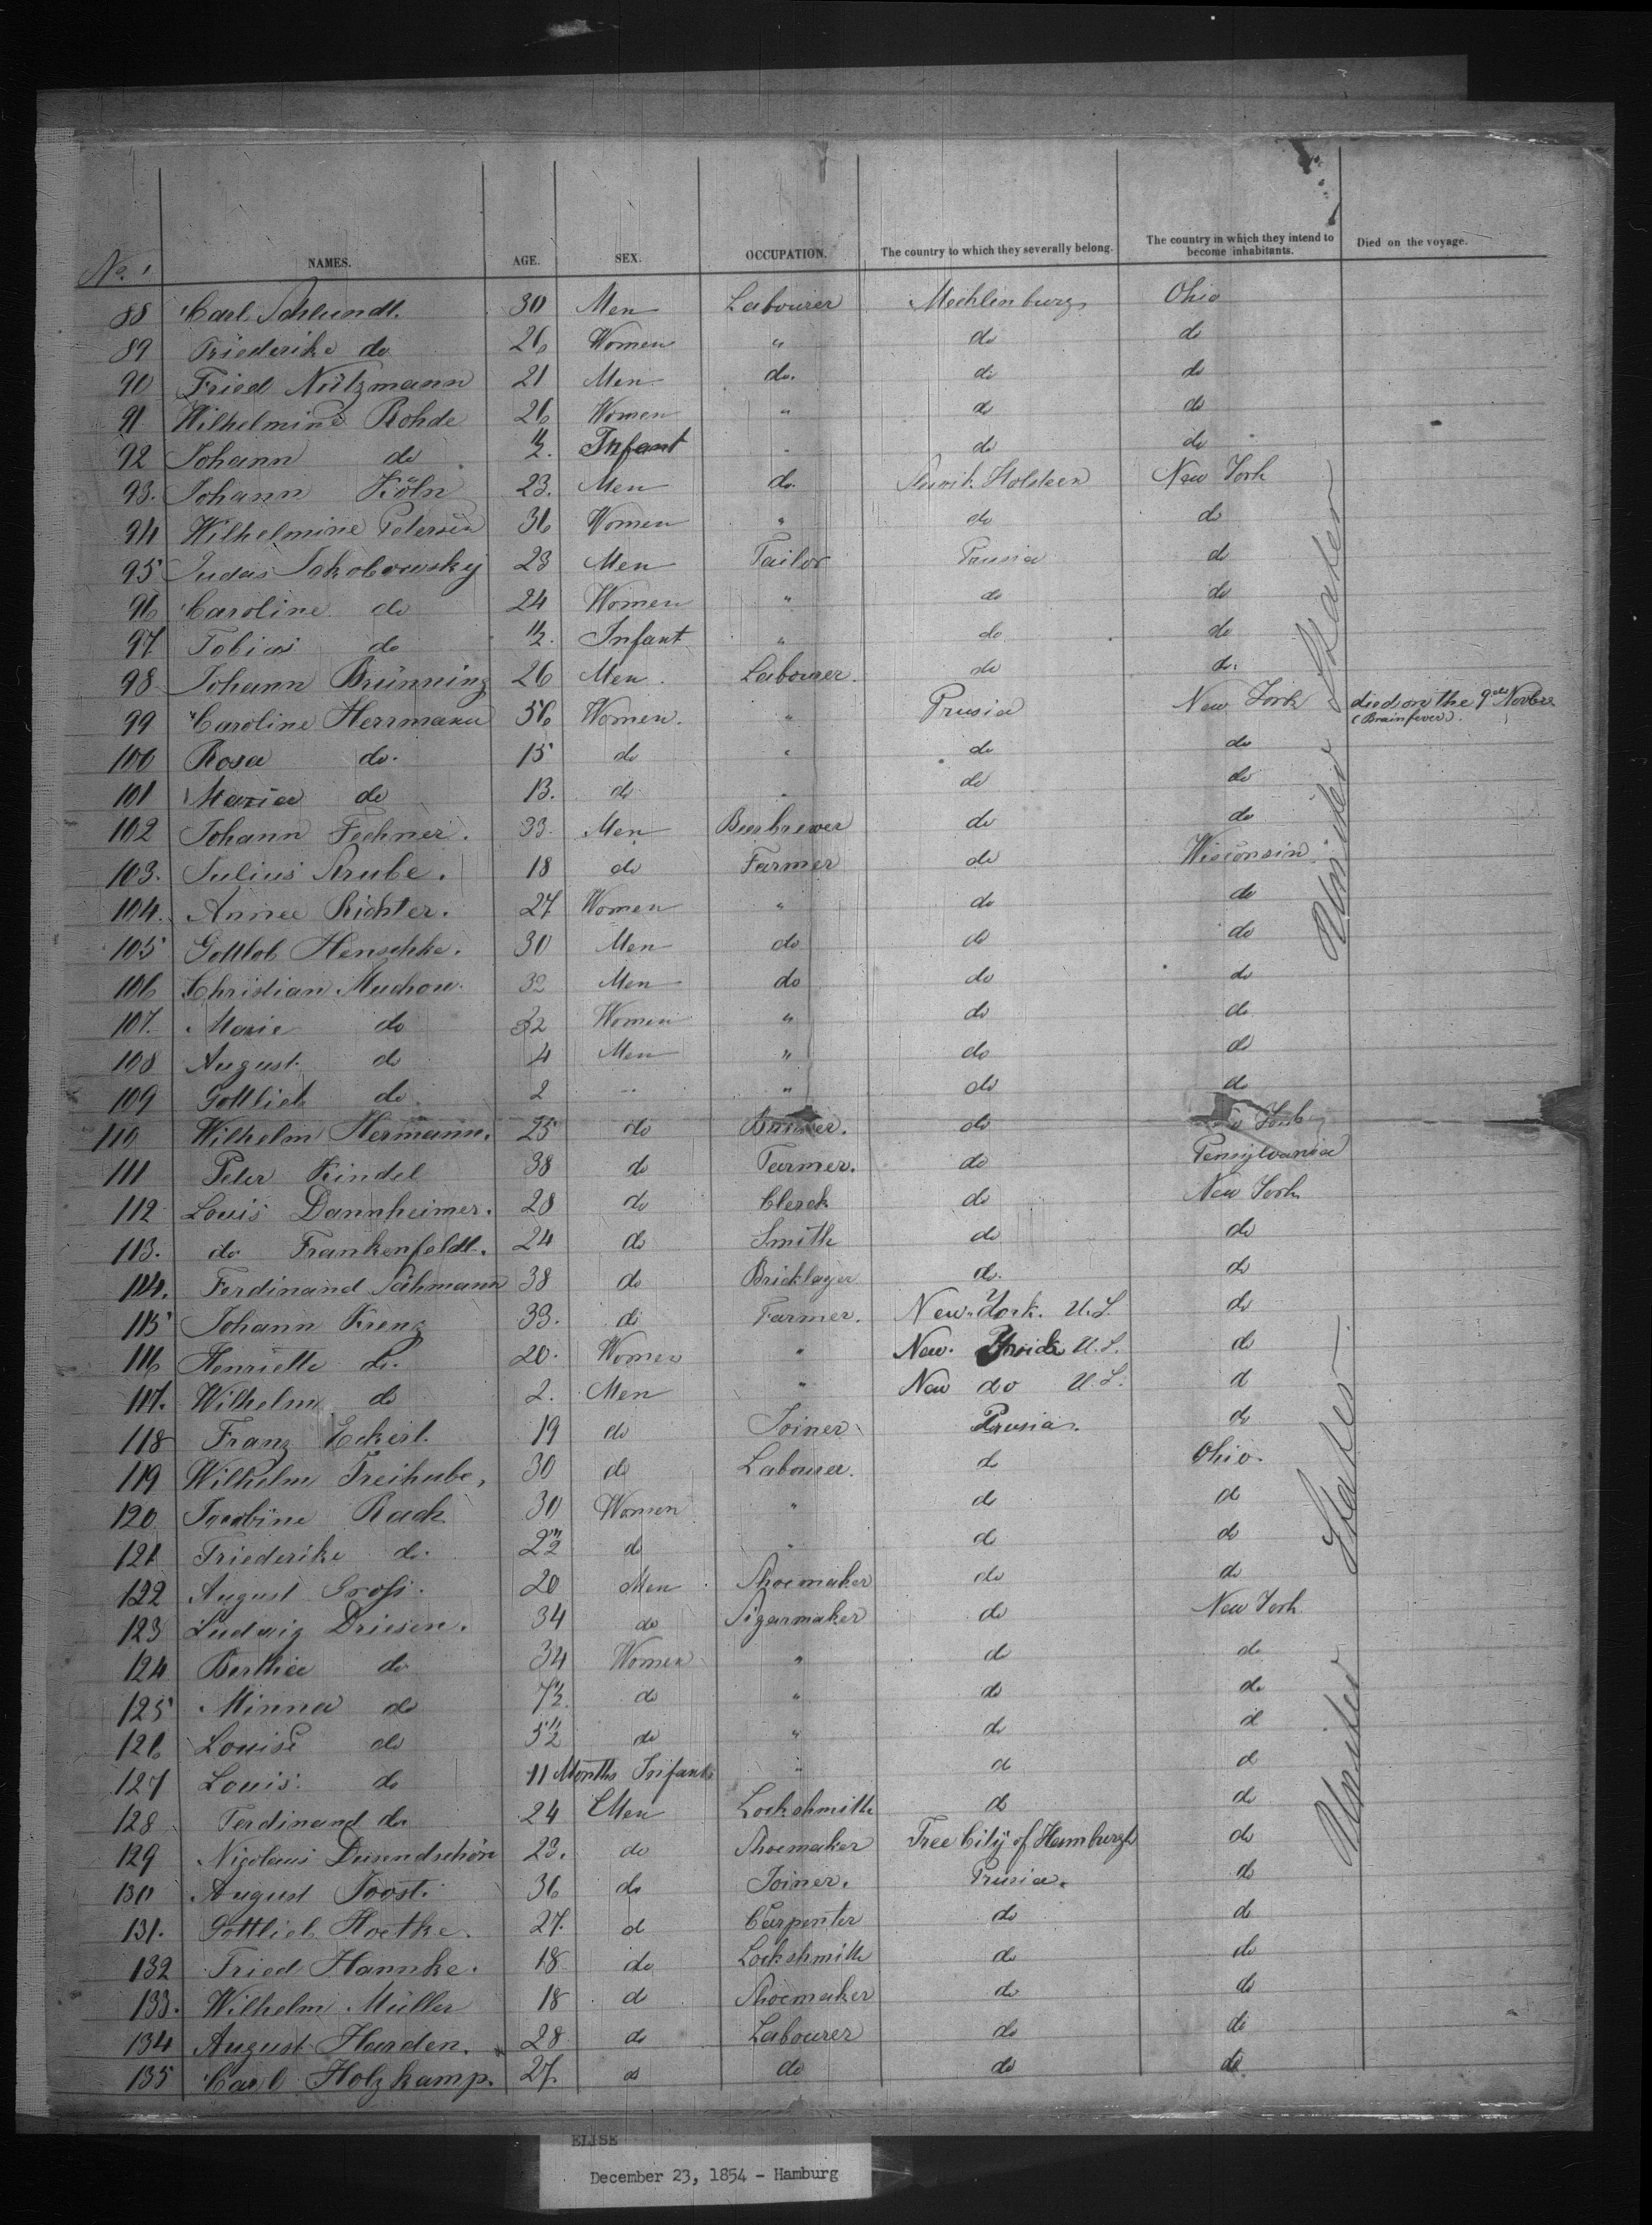 No. NAMES. AGE. SEX. OCCUPATION. The country to which they severally belong. The country in which they intend to become inhabitants. Died on the voyage.
88 Carl Schlundt. 30 Men Labourer Mechlinburg Ohio
89 Friederike do 26 Women " do do
90 Fried Nützmann 21 Men do. do do
91 Wilhelmine Rohde 26 Women " do do
92 Johann do 1/2. Infant " do do
93. Johann Köln 23. Men do. Holstein New York
94 Wilhelmine Petersen 36 Women " do do
95 Judas Jakobowsky 23 Men Tailor Prusia do
96 Caroline do 24 Women " do do
97 Tobias do 1/2. Infant " do do
98 Johann Brünning 26 Men Labourer. do do.
99 Caroline Herrmann 56 Women. " Prusia New York died on the 9th Novbr
(Brainfever).
100 Rosa do. 15 do " do do
101 Maria do 13. do " do do
102 Johann Fechner. 33. Men Beerbrewer do do
103. Julius Krube. 18 do Farmer do Wisconsin
104. Annee Richter. 27 Women " do do
105 Gottlob Henschke. 30 Men do do do
106 Christian Muchow 32 Men do do do
107. Marie do 32 Women " do do
108 August do 4 Men " do do
109 Gottlieb do 2 " " do do
110 Wilhelm Hermann. 25 do do York
111 Peter Kindel 38 do Farmer. do Pensylvania
112 Louis Dannheimer. 28 do Clerck do New York
113. do Frankenfeldt. 24 do Smith do do
114. Ferdinand Pähmann 38 do Bricklayer do. do
115 Johann Krenz 33. do Farmer. New-York. U.S. do
116 Henriette do. 20. Women " New. U.S. do
117. Wilhelm do 2. Men " New do U.S. d
118 Franz Eckert. 19 do Joiner Prusia. do
119 Wilhelm Freihube, 30 do Labourer. do Ohio.
120 Jacobine Rack 30 Women " do do
121 Friederike do. 2 1/2 do " do do
122 August Groß. 20 Men Shoemaker do do
123 Ludwig Driesen. 34 do Sigarmaker do New York
124 Berthee do 34 Women " do do
125 Minna do 7 1/2. do " do do
126 Louise do 5 1/2 do " do d
127 Louis. do 11 Months Infants " d d
128 Ferdinand do 24 Men Lockshmith do do
129 Nigolaus Dusendschön 23. do Shoemaker Free City of Hamburgh do
130 August Joost. 36 do Joiner. Prusia. do
131. Gottlieb Hoetke. 27. d Carpenter do d
132 Fried Hannke. 18 do Lockshmith do do
133. Wilhelm Müller 18 d Shoemaker do do
134 August Harden. 28 do Labourer do do
135 Carl Holzkamp. 27. do do do do
United States
United States
ELISE
December 23, 1854 - Hamburg